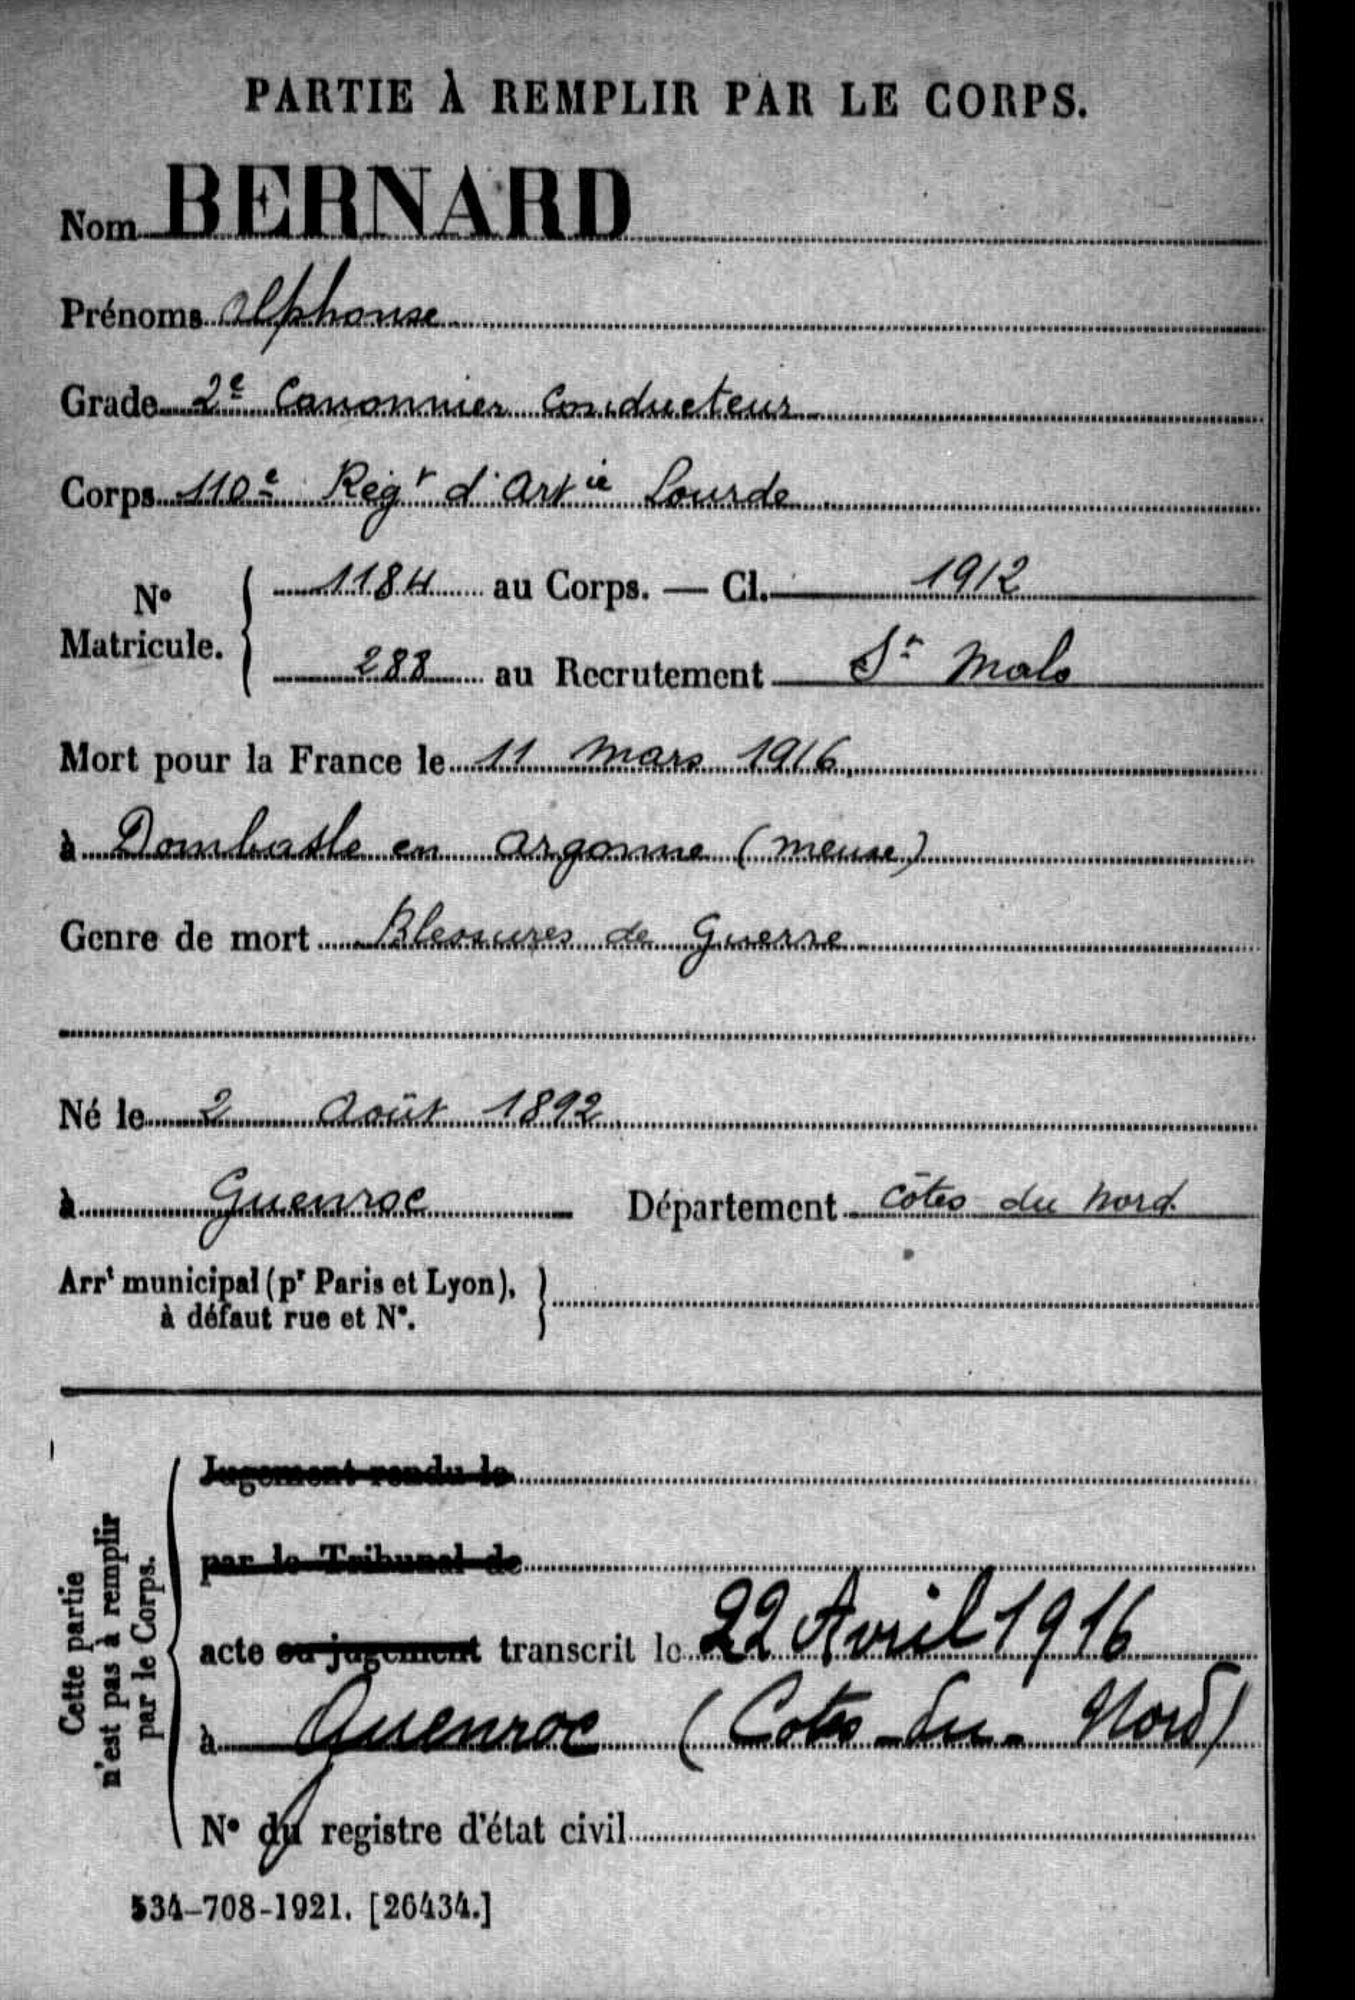 PARTIE À REMPLIR PAR LE CORPS.
Nom BERNARD
Prénoms Alphonse
Grade 2e Canonnier Conducteur
Corps 110e Régt d'Artie Lourde
No Matricule. { 1184 au Corps. — Cl. 1912
288 au Recrutement St Malo
Mort pour la France le 11 Mars 1916
à Dombasle en Argonne (Meuse)
Genre de mort Blessures de Guerre
Né le 2 Août 1892
à Guenroc Département Côtes du Nord
Arrt municipal (pr Paris et Lyon),
à défaut rue et No.
Cette partie
n'est pas à remplir
par le Corps.
Jugement rendu le
par le Tribunal de
acte ou jugement transcrit le 22 Avril 1916
à Guenroc (Cotes-du-Nord)
No du registre d'état civil
534-708-1921. [26434.]